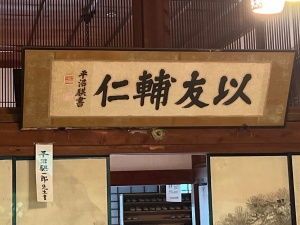 以友輔仁
平沼騏書
平沼騏一郎先生書